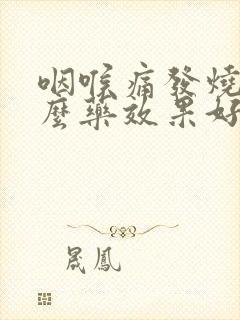 咽喉痛發燒
麼藥效果好
晟鳳